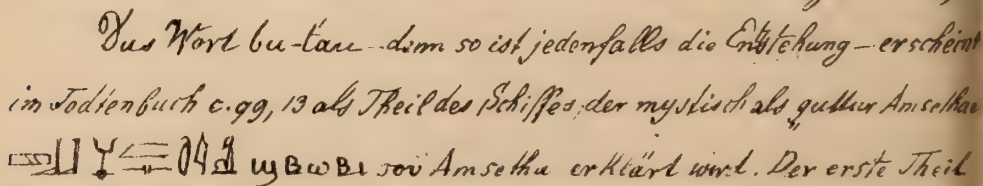 Das Wort bu-tau - denn so ist jedenfalls die Entstehung - erscheint
im Todtenbuch c. 99, 13 als Theil des Schiffes, der mystisch als „guttur Amsethae
ϣⲃⲱⲃⲓ τοῦ Amsethu erklärt wird. Der erste Theil